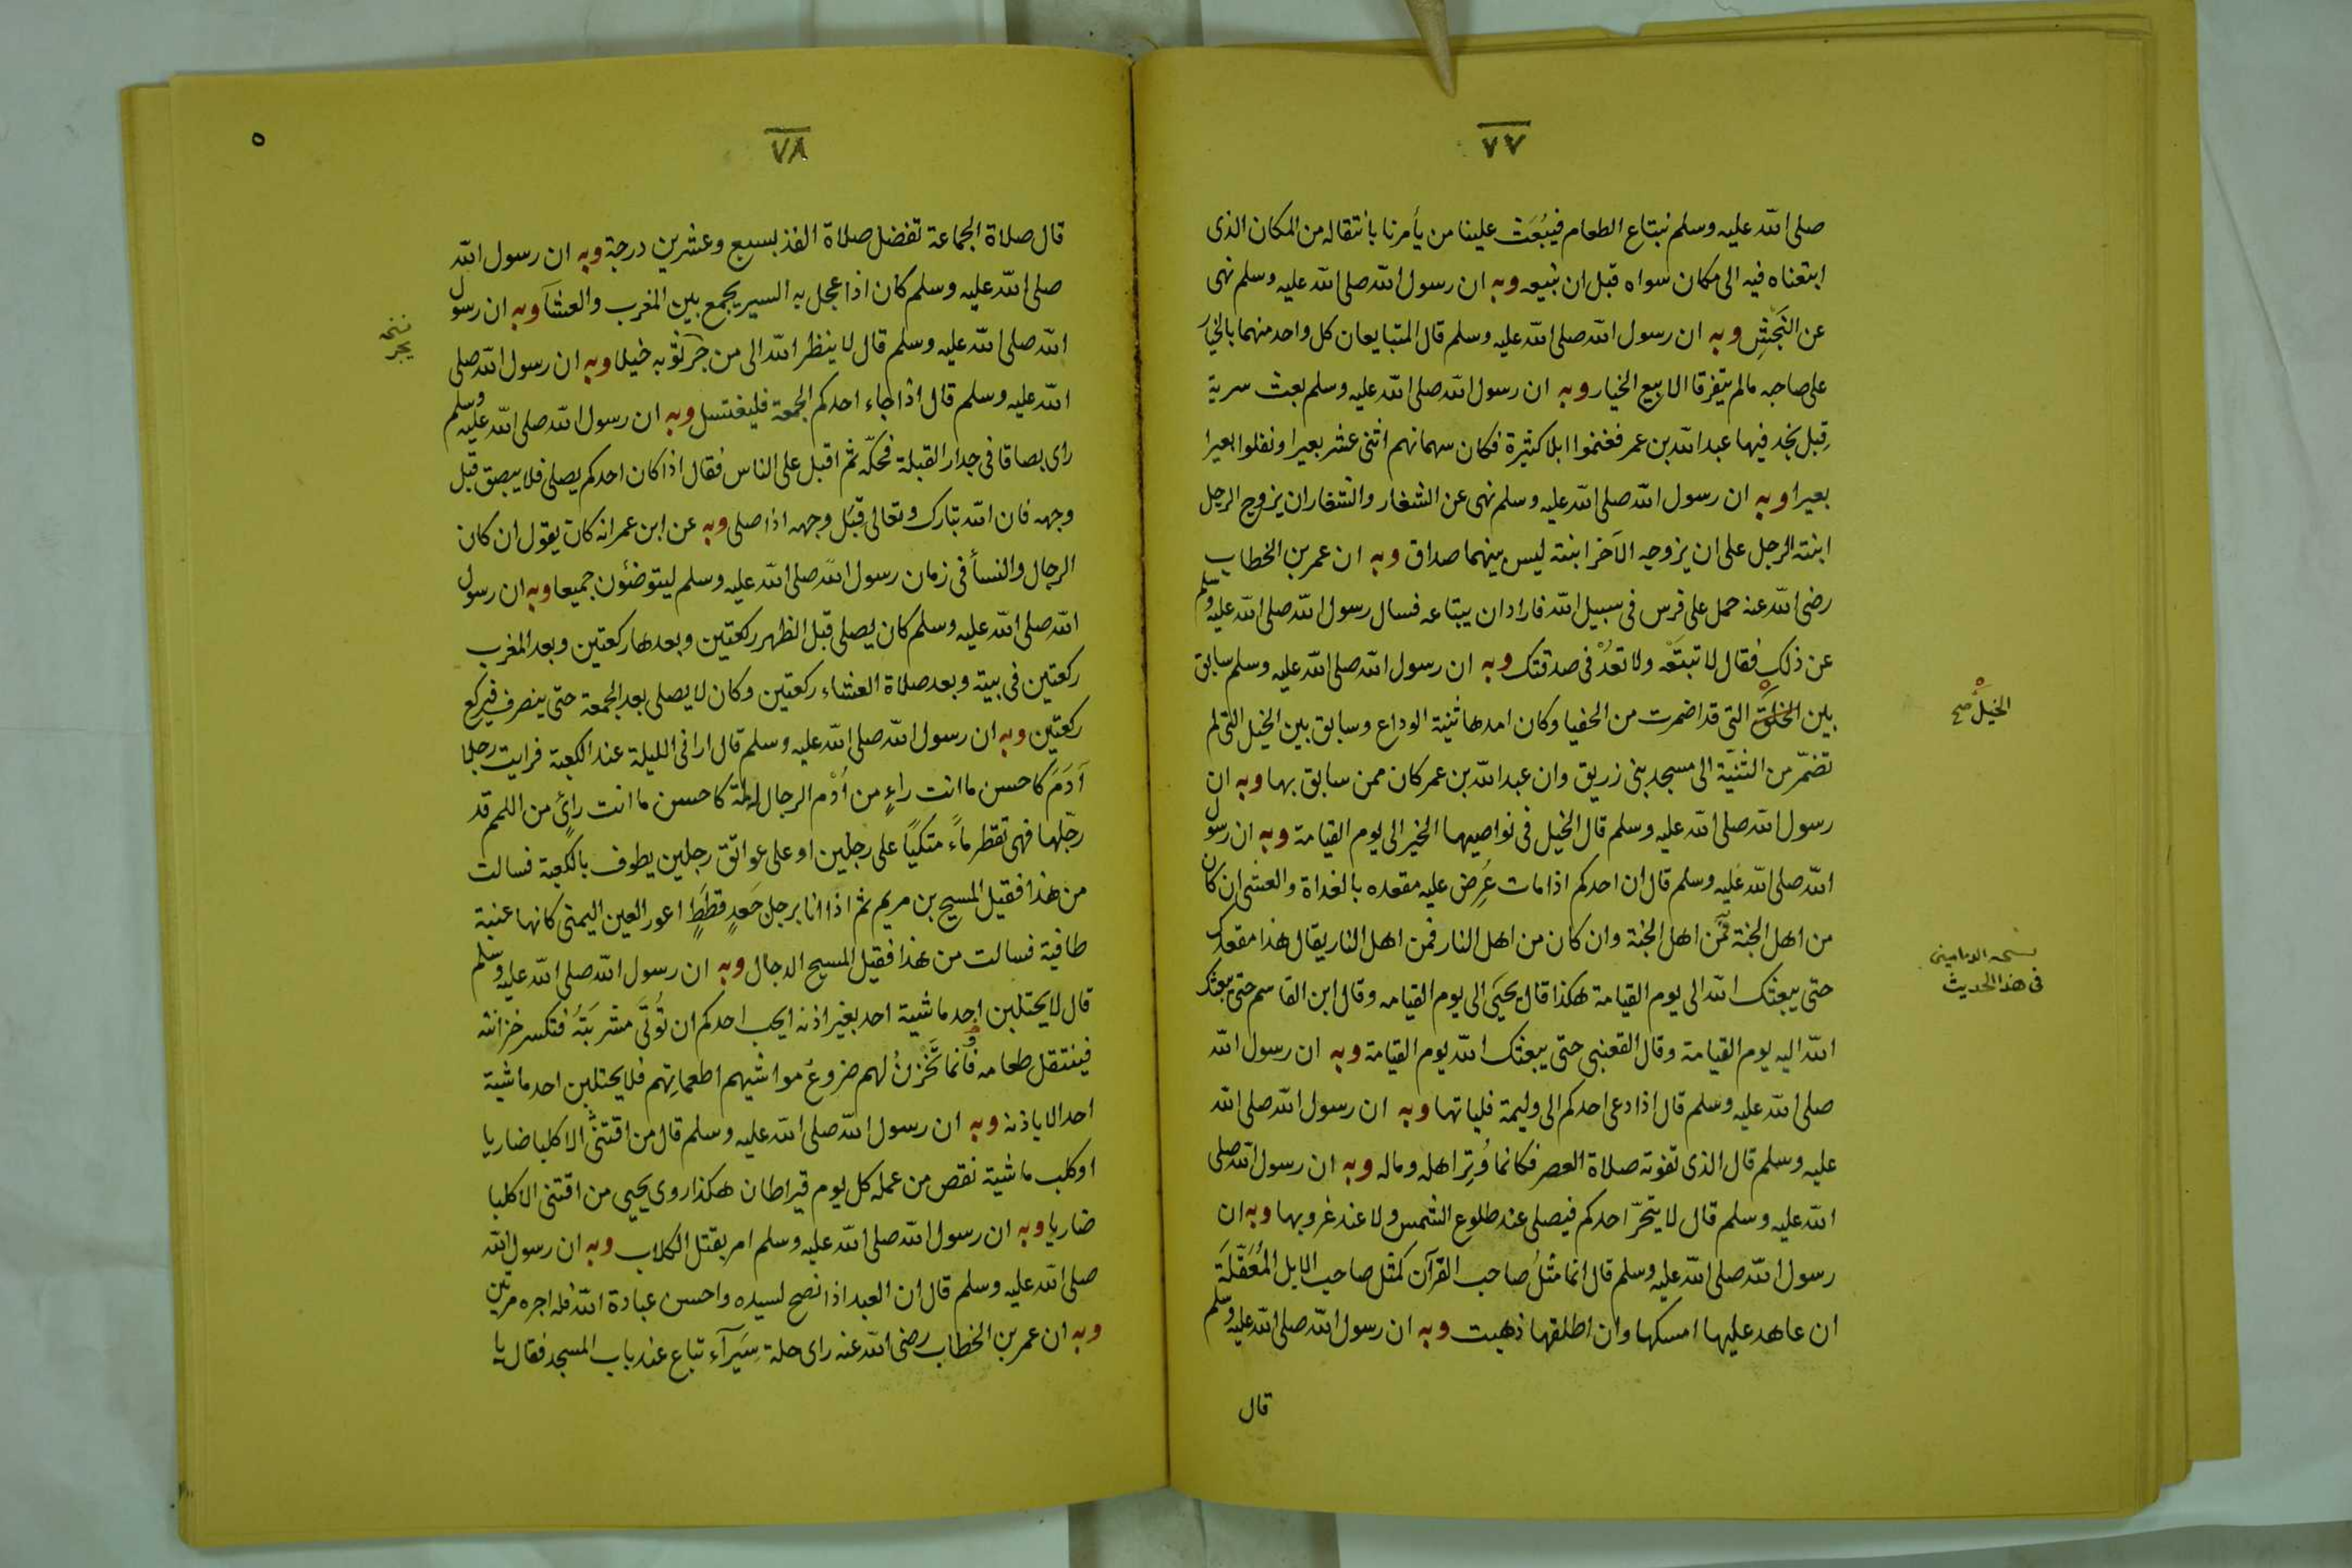 ٧٧
صلى الله عليه وسلم نبتاع الطعام فيُبْعَث علينا من يأمرنا بانتقاله من المكان الذى
ابتعناه فيه الى مكان سواه قبل ان نبيعه وبه ان رسول الله صلى الله عليه وسلم نهى
عن النَجَشِ وبه ان رسول الله صلى الله عليه وسلم قال المتبايعان كل واحد منهما بالخيار
على صاحبه مالم يتفرقا الا بيع الخيار وبه ان رسول الله صلى الله عليه وسلم بعث سرية
قِبل نجد فيها عبد الله بن عمر فغنموا ابلا كثيرة فكان سهمانهم اثنى عشر بعيرا ونفلوا بعيرا
بعيرا وبه ان رسول الله صلى الله عليه وسلم نهى عن الشغار والشغار ان يزوج الرجل
ابنته الرجل على ان يزوجه الآخر ابنته ليس بينهما صداق وبه ان عمر بن الخطاب
رضى الله عنه حمل على فرس فى سبيل الله فاراد ان يبتاعه فسال رسول الله صلى الله عليه وسلم
عن ذلك فقال لا تبتَعْه ولا تعُدْ فى صدقتك وبه ان رسول الله صلى الله عليه وسلم سابق
بين التى قد اضمرت من الحفيا وكان امدها ثنية الوداع وسابق بين الخيل التى لم
الخيل صح
تضمّر من الثنيّة الى مسجد بنى زريق وان عبد الله بن عمر كان ممن سابق بها وبه ان
رسول الله صلى الله عليه وسلم قال الخيل فى نواصيها الخير الى يوم القيامة وبه ان رسول
الله صلى الله عليه وسلم قال ان احدكم اذا مات عُرِض عليه مقعده بالغداة والعشى ان كان
من اهل الجنة فمن اهل الجنة وان كان من اهل النار فمن اهل النار يقال هذا مقعدك
فى هذا الحديث
حتى يبعثك الله الى يوم القيامة هكذا قال يحيَى الى يوم القيامه وقال ابن القاسم حتى يبعثك
الله اليه يوم القيامة وقال القعنبى حتى يبعثك الله يوم القيامة وبه ان رسول الله
صلى الله عليه وسلم قال اذا دعى احدكم الى وليمة فلياتها وبه ان رسول الله صلى الله
عليه وسلم قال الذى تفوته صلاة العصر فكانما وُتِرَ اهله وماله وبه ان رسول الله صلى
الله عليه وسلم قال لا يتحرّ احدكم فيصلى عند طلوع الشمس ولا عند غروبها وبه ان
رسول الله صلى الله عليه وسلم قال انما مثلُ صاحب القرآن كمثل صاحب الابل المُعَقَّلَة
ان عاهد عليها امسكها وان اطلقها ذهبت وبه ان رسول الله صلى الله عليه وسلم
قال
٧٨
٥
قال صلاة الجماعة تفضل صلاة الفذ بسبع وعشرين درجة وبه ان رسول الله
صلى الله عليه وسلم كان اذا عجل به السير يجمع بين المغرب والعشآ وبه ان رسول
الله صلى الله عليه وسلم قال لا ينظر الله الى من جرّ ثوبه خيلا وبه ان رسول الله صلى
نسخه
يجر
الله عليه وسلم قال اذا جاء احدكم الجمعة فليغتسل وبه ان رسول الله صلى الله عليه وسلم
راى بصاقا فى جدار القبلة فحكّه ثم اقبل على الناس فقال اذا كان احدكم يصلى فلا يبصق قبل
وجهه فان الله تبارك وتعالى قِبَل وجهه اذا صلى وبه عن ابن عمر انه كان يقول ان كان
الرجال والنسأ فى زمان رسول الله صلى الله عليه وسلم ليتوضئون جميعا وبه ان رسول
الله صلى الله عليه وسلم كان يصلى قبل الظهر ركعتين وبعدها ركعتين وبعد المغرب
ركعتين فى بيته وبعد صلاة العشاء ركعتين وكان لا يصلى بعد الجمعة حتى ينصرف فيركع
ركعتين وبه ان رسول الله صلى الله عليه وسلم قال ارانى الليلة عند الكعبة فرايت رجلا
آدَمَ كاحسن ما انت راءٍ من اُدْم الرجال له لمة كاحسن ما انت رائٍ من اللمم قد
رجّلها فهى تقطر ماءً متكيًا على رجلين او على عواتق رجلين يطوف بالكعبة فسالت
من هذا فقيل المسيح بن مريم ثم اذا انا برجل جَعدٍ قطَطٍ اعور العين اليمنى كانها عنبة
طافية فسالت من هذا فقيل المسيح الدجال وبه ان رسول الله صلى الله عليه وسلم
قال لا يحتلبن احد ماشية احد بغير اذنه ايحب احدكم ان تُوتَى مشربَتَهُ فتكسر خزانته
فينتقل طعامه فانما تَخْزنُ لهم ضروعُ مواشيهم اطعماتِهم فلا يحتلبن احد ماشية
احد الا باذنه وبه ان رسول الله صلى الله عليه وسلم قال من اقتنى الا كلبا ضاريا
او كلب ماشية نقص من عمله كل يوم قيراطان هكذا روى يحيى من اقتنى الا كلبا
ضاريا وبه ان رسول الله صلى الله عليه وسلم امر بقتل الكلاب وبه ان رسول الله
صلى الله عليه وسلم قال ان العبد اذا نصح لسيده واحسن عبادة الله فله اجره مرتين
وبه ان عمر بن الخطاب رضى الله عنه راى حلة سِيَرآء تباع عند باب المسجد فقال يا